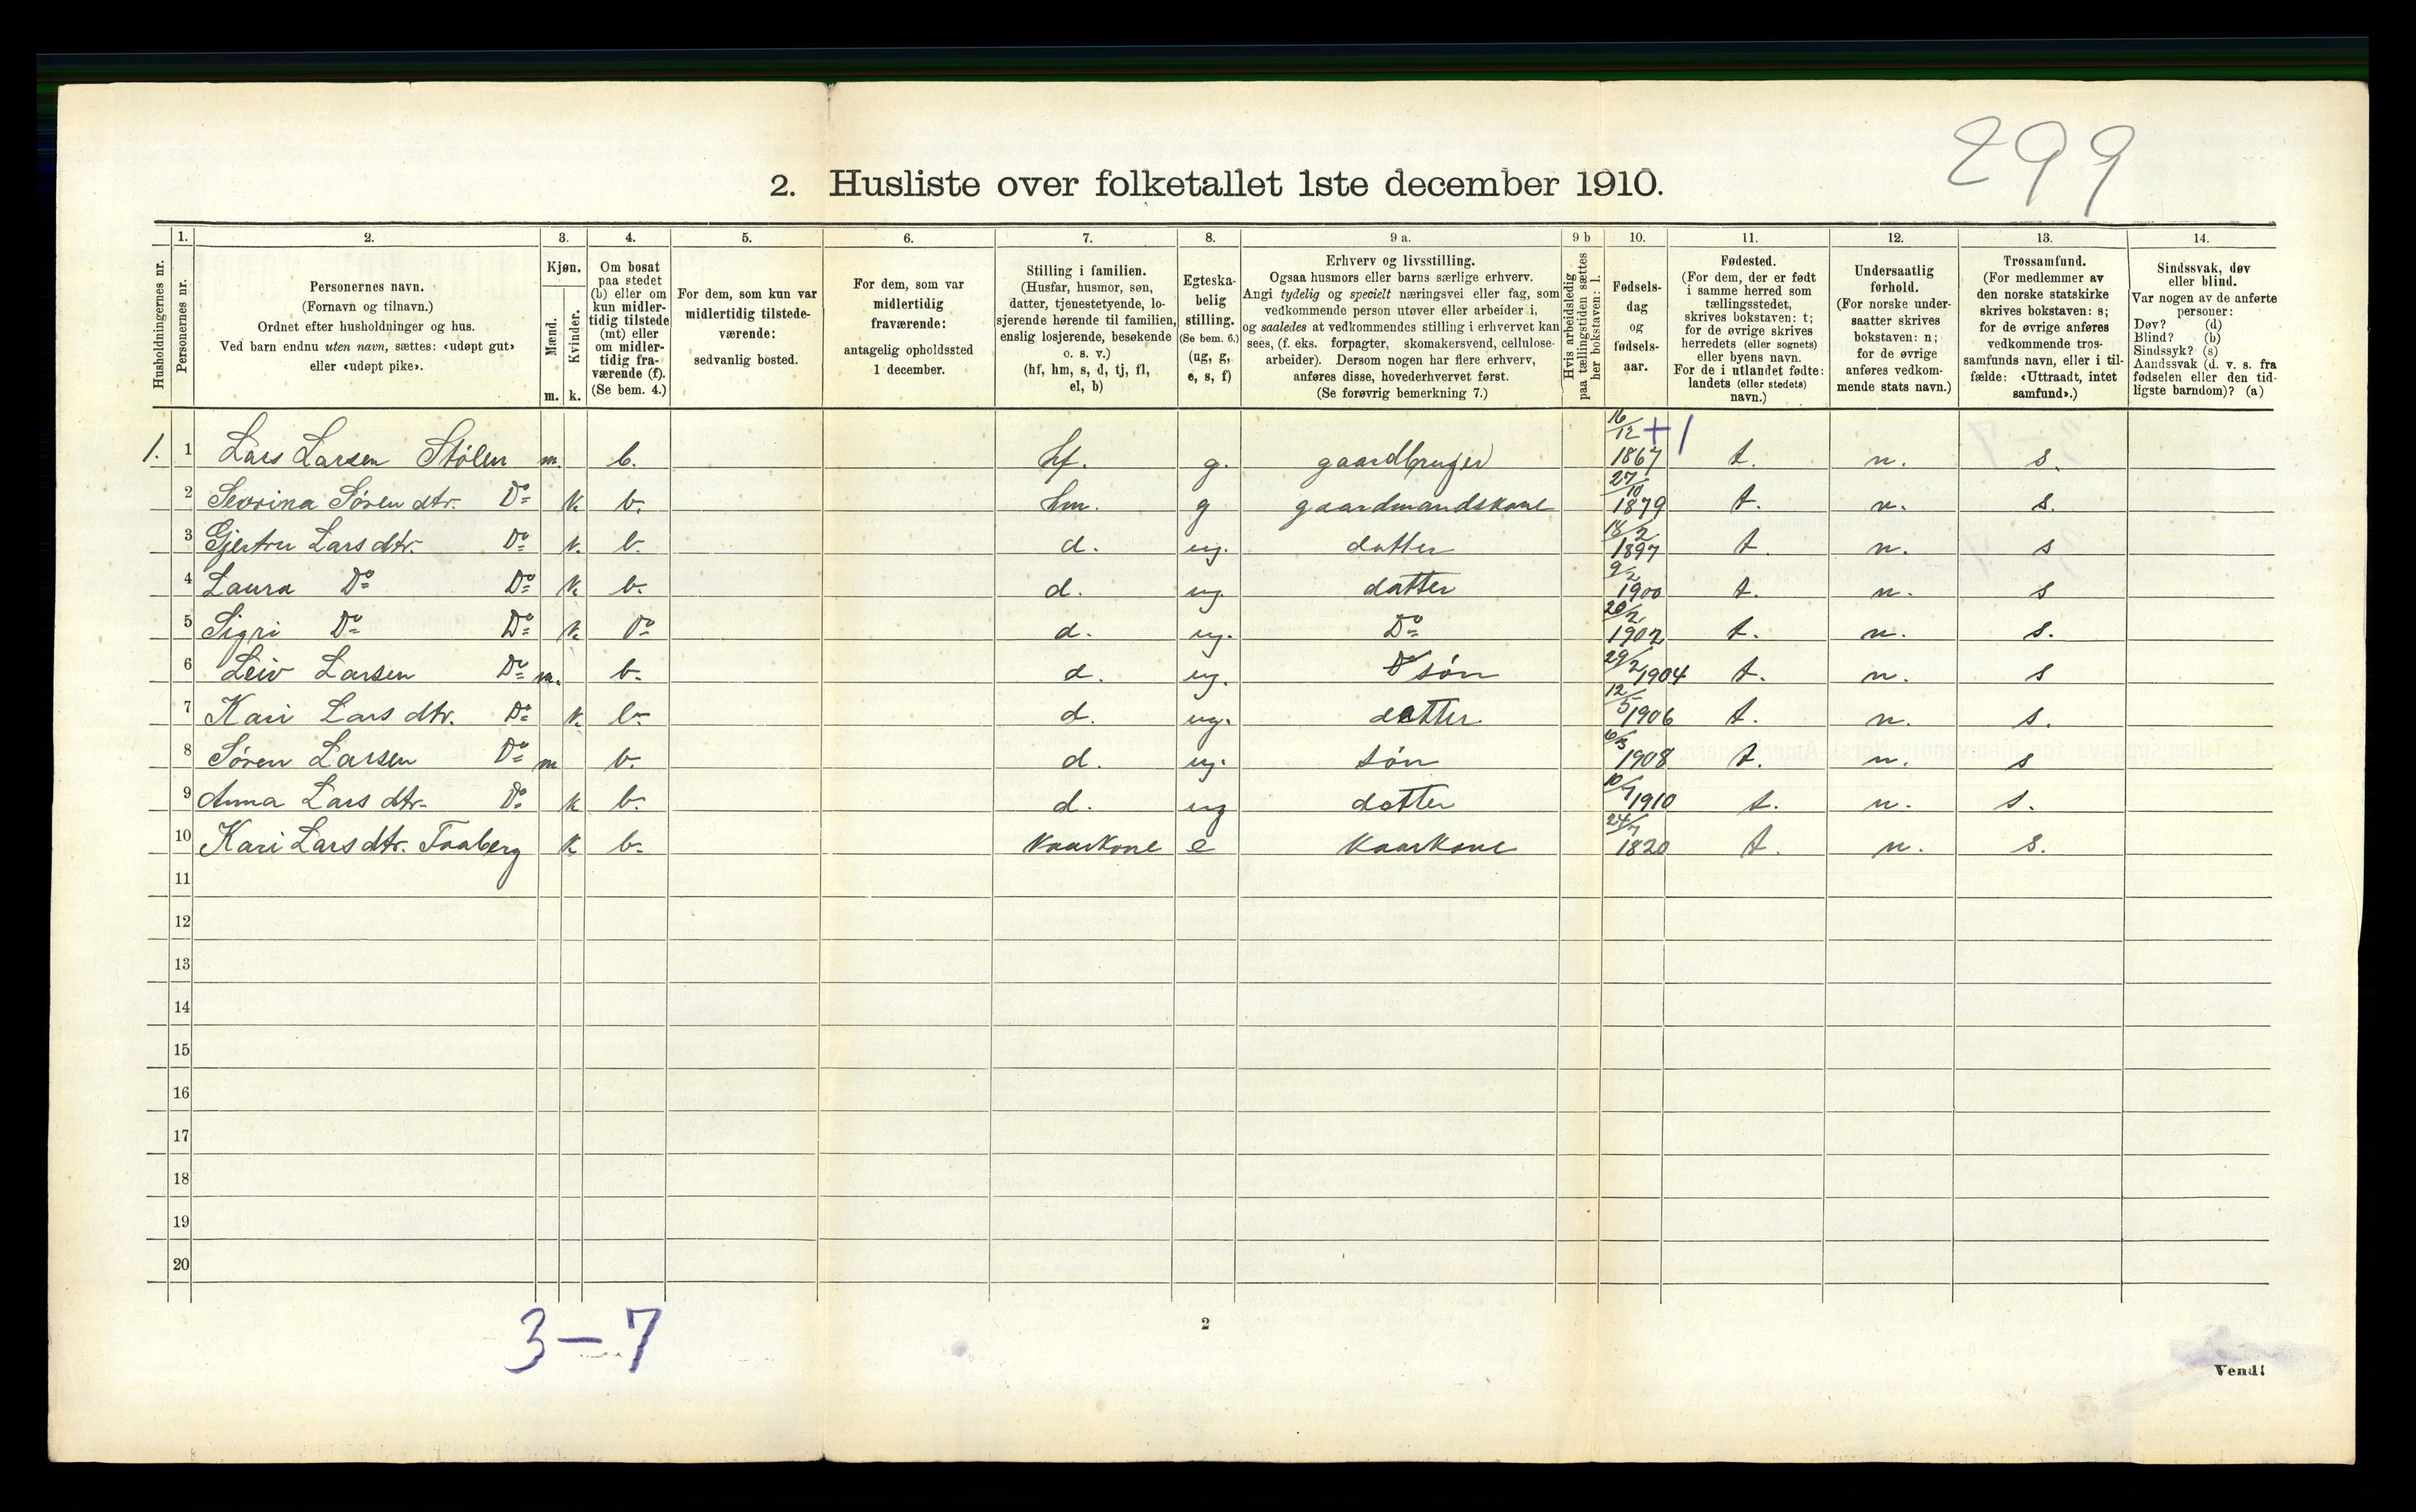 299
2. Husliste over folketallet 1ste december 1910.
Husholdningernes nr.
1.
Personernes nr.
2.
Personernes navn.
(Fornavn og tilnavn.)
Ordnet efter husholdninger og hus.
Ved barn endnu uten navn, sættes: «udøpt gut»
eller «udøpt pike».
3.
Kjøn.
Mænd.
Kvinder.
m. k.
4.
Om bosat
paa stedet
(b) eller om
kun midler-
tidig tilstede
(mt) eller
om midler-
tidig fra-
værende (f).
(Se bem. 4.)
5.
For dem, som kun var
midlertidig tilstede-
værende:
sedvanlig bosted.
6.
For dem, som var
midlertidig
fraværende:
antagelig opholdssted
1 december.
7.
Stilling i familien.
(Husfar, husmor, søn,
datter, tjenestetyende, lo-
sjerende hørende til familien,
enslig losjerende, besøkende
o. s. v.)
(hf, hm, s, d, tj, fl,
el, b)
8.
Egteska-
belig
stilling.
(Se bem. 6.)
(ug, g,
e, s, f)
9 a.
Erhverv og livsstilling.
Ogsaa husmors eller barns særlige erhverv.
Angi tydelig og specielt næringsvei eller fag, som
vedkommende person utøver eller arbeider i,
og saaledes at vedkommendes stilling i erhvervet kan
sees, (f. eks. forpagter, skomakersvend, cellulose-
arbeider). Dersom nogen har flere erhverv,
anføres disse, hovederhvervet først.
(Se forøvrig bemerkning 7.)
9 b
Hvis arbeidsledig
paa tællingstiden sættes
her bokstaven: l.
10.
Fødsels-
dag
og
fødsels-
aar.
11.
Fødested.
(For dem, der er født
i samme herred som
tællingsstedet,
skrives bokstaven: t;
for de øvrige skrives
herredets (eller sognets)
eller byens navn.
For de i utlandet fødte:
landets (eller stedets)
navn.)
12.
Undersaatlig
forhold.
(For norske under-
saatter skrives
bokstaven: n;
for de øvrige
anføres vedkom-
mende stats navn.)
13.
Trossamfund.
(For medlemmer av
den norske statskirke
skrives bokstaven: s;
for de øvrige anføres
vedkommende tros-
samfunds navn, eller i til-
fælde: «Uttraadt, intet
samfund».)
14.
Sindssvak, døv
eller blind.
Var nogen av de anførte
personer:
Døv? (d)
Blind? (b)
Sindssyk? (s)
Aandssvak (d. v. s. fra
fødselen eller den tid-
ligste barndom)? (a)
1. 1 Lars Larsen Stølen m. b. hf. g. gaardbruger 16/12 1867 +1 t. n. s.
2 Sevrina Søren dtr. Do k b. hm. g gaardmandskone 27/10 1879 t. n. s.
3 Gjertru Lars dtr. Do k. b. d. ug. datter 18/2 1897 t. n. s
4 Laura Do Do k b. d. ug. datter 9/2 1900 t. n. s
5 Sigri Do Do k Do d. ug. Do 20/2 1902 t. n. s.
6 Leiv Larsen Do m. b. d. ug. søn 29/2 1904 t. n. s
7 Kari Lars dtr. Do k. b. d. ug. datter 12/5 1906 t. n. s.
8 Søren Larsen Do m b. d. ug. søn 6/3 1908 t. n. s
9 Anna Lars dtr. Do k b. d. ug datter 10/7 1910 t. n. s.
10 Kari Lars dtr. Faaberg k b. Kaarkone e Kaarkone 24/7 1820 t. n. s.
11
12
13
14
15
16
17
18
19
20
3-7
2
Vend!